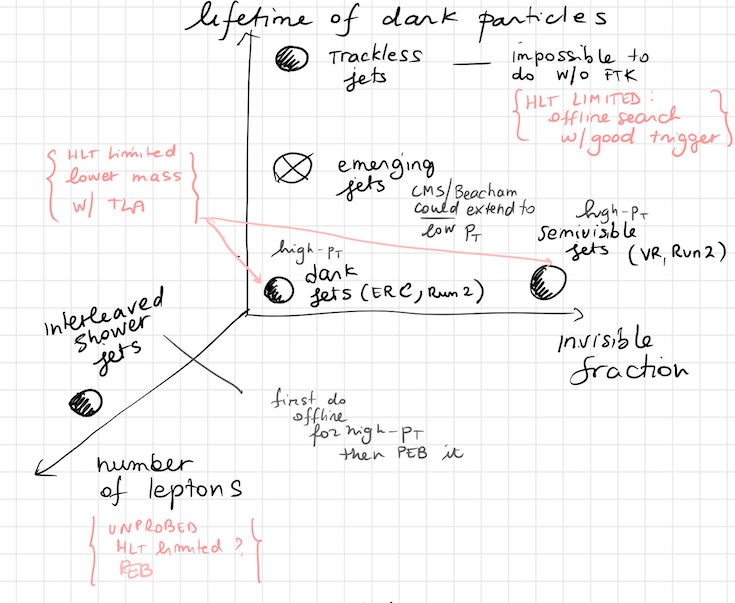 lifetime of dark particles
Trackless
jets
impossible to
do w/o FTK
HLT LIMITED:
offline search
w/good trigger
HLT limited
lower mass
w/ TLA
emerging
jets
CMS/Beacham
could extend to
low PT
high-PT
semivisible
jets (VR, Run2)
high-PT
dark
jets (ERC, Run2)
interleaved
shower
jets
invisible
fraction
first do
offline
for high-PT
then PEB it
number
of leptons
UNPROBED
HLT limited?
PEB